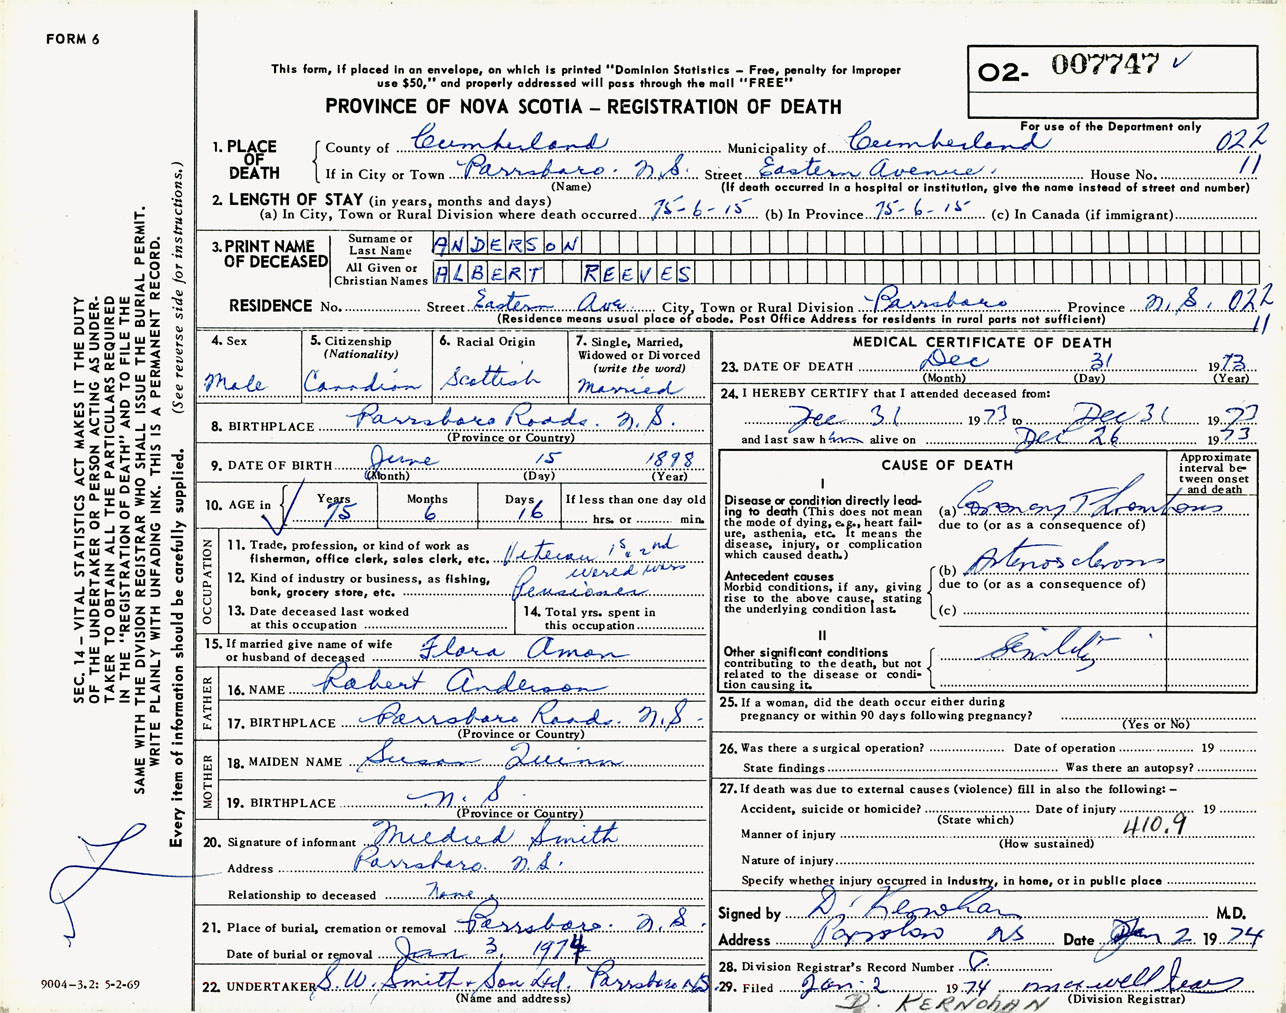 FORM 6
This form, if placed in an envelope, on which is printed "Dominion Statistics – Free, penalty for improper
use $50," and properly addressed will pass through the mail "FREE"
PROVINCE OF NOVA SCOTIA – REGISTRATION OF DEATH
02- 007747 ✓
For use of the Department only
022
11
1. PLACE OF DEATH
County of Cumberland Municipality of Cumberland
If in City or Town Parrsboro. N.S. Street Eastern Avenue. House No.
(Name) (If death occurred in a hospital or institution, give the name instead of street and number)
2. LENGTH OF STAY (in years, months and days)
(a) In City, Town or Rural Division where death occurred 75-6-15 (b) In Province 75-6-15 (c) In Canada (if immigrant)
3. PRINT NAME OF DECEASED
Surname or Last Name ANDERSON
All Given or Christian Names ALBERT REEVES
RESIDENCE No. Street Eastern Ave. City, Town or Rural Division Parrsboro Province N.S. 022
(Residence means usual place of abode. Post Office Address for residents in rural parts not sufficient) 11
4. Sex Male
5. Citizenship (Nationality) Canadian
6. Racial Origin Scottish
7. Single, Married, Widowed or Divorced (write the word) Married
8. BIRTHPLACE Parrsboro Roads. N.S.
(Province or Country)
9. DATE OF BIRTH June 15 1898
(Month) (Day) (Year)
10. AGE in Years 75 Months 6 Days 16 If less than one day old hrs. or min.
OCCUPATION
11. Trade, profession, or kind of work as
fisherman, office clerk, sales clerk, etc. Veteran 1st & 2nd
12. Kind of industry or business, as fishing, world wars
bank, grocery store, etc. Pensioner
13. Date deceased last worked
at this occupation
14. Total yrs. spent in
this occupation
15. If married give name of wife
or husband of deceased Flora Amon
FATHER
16. NAME Robert Anderson
17. BIRTHPLACE Parrsboro Roads. N.S.
(Province or Country)
MOTHER
18. MAIDEN NAME Susan Quinn
19. BIRTHPLACE N.S.
(Province or Country)
20. Signature of informant Mildred Smith
Address Parrsboro. N.S.
Relationship to deceased None.
21. Place of burial, cremation or removal Parrsboro. N.S.
Date of burial or removal Jan 3, 1974
22. UNDERTAKER S.W. Smith & Son Ltd. Parrsboro N.S.
(Name and address)
MEDICAL CERTIFICATE OF DEATH
23. DATE OF DEATH Dec 31 1973
(Month) (Day) (Year)
24. I HEREBY CERTIFY that I attended deceased from:
Dec 31 1973 to Dec 31 1973
and last saw him alive on Dec 26 1973
CAUSE OF DEATH
Approximate
interval be-
tween onset
and death
I
Disease or condition directly lead-
ing to death (This does not mean
the mode of dying, e.g., heart fail-
ure, asthenia, etc. It means the
disease, injury, or complication
which caused death.)
(a) Coronary Thrombosis
due to (or as a consequence of)
Antecedent causes
Morbid conditions, if any, giving
rise to the above cause, stating
the underlying condition last.
(b) Arteriosclerosis
due to (or as a consequence of)
(c)
II
Other significant conditions
contributing to the death, but not
related to the disease or condi-
tion causing it.
Senility
25. If a woman, did the death occur either during
pregnancy or within 90 days following pregnancy?
(Yes or No)
26. Was there a surgical operation? Date of operation 19
State findings Was there an autopsy?
27. If death was due to external causes (violence) fill in also the following: –
Accident, suicide or homicide? Date of injury 19
(State which) 410.9
Manner of injury
(How sustained)
Nature of injury
Specify whether injury occurred in industry, in home, or in public place
Signed by D. Kernohan M.D.
Address Parrsboro NS Date Jan 2 1974
28. Division Registrar's Record Number
29. Filed Jan. 2 1974
D. KERNOHAN (Division Registrar)
SEC. 14 – VITAL STATISTICS ACT MAKES IT THE DUTY
OF THE UNDERTAKER OR PERSON ACTING AS UNDER-
TAKER TO OBTAIN ALL THE PARTICULARS REQUIRED
IN THE "REGISTRATION OF DEATH" AND TO FILE THE
SAME WITH THE DIVISION REGISTRAR WHO SHALL ISSUE THE BURIAL PERMIT.
WRITE PLAINLY WITH UNFADING INK. THIS IS A PERMANENT RECORD.
Every item of information should be carefully supplied. (See reverse side for instructions.)
9004-3.2: 5-2-69